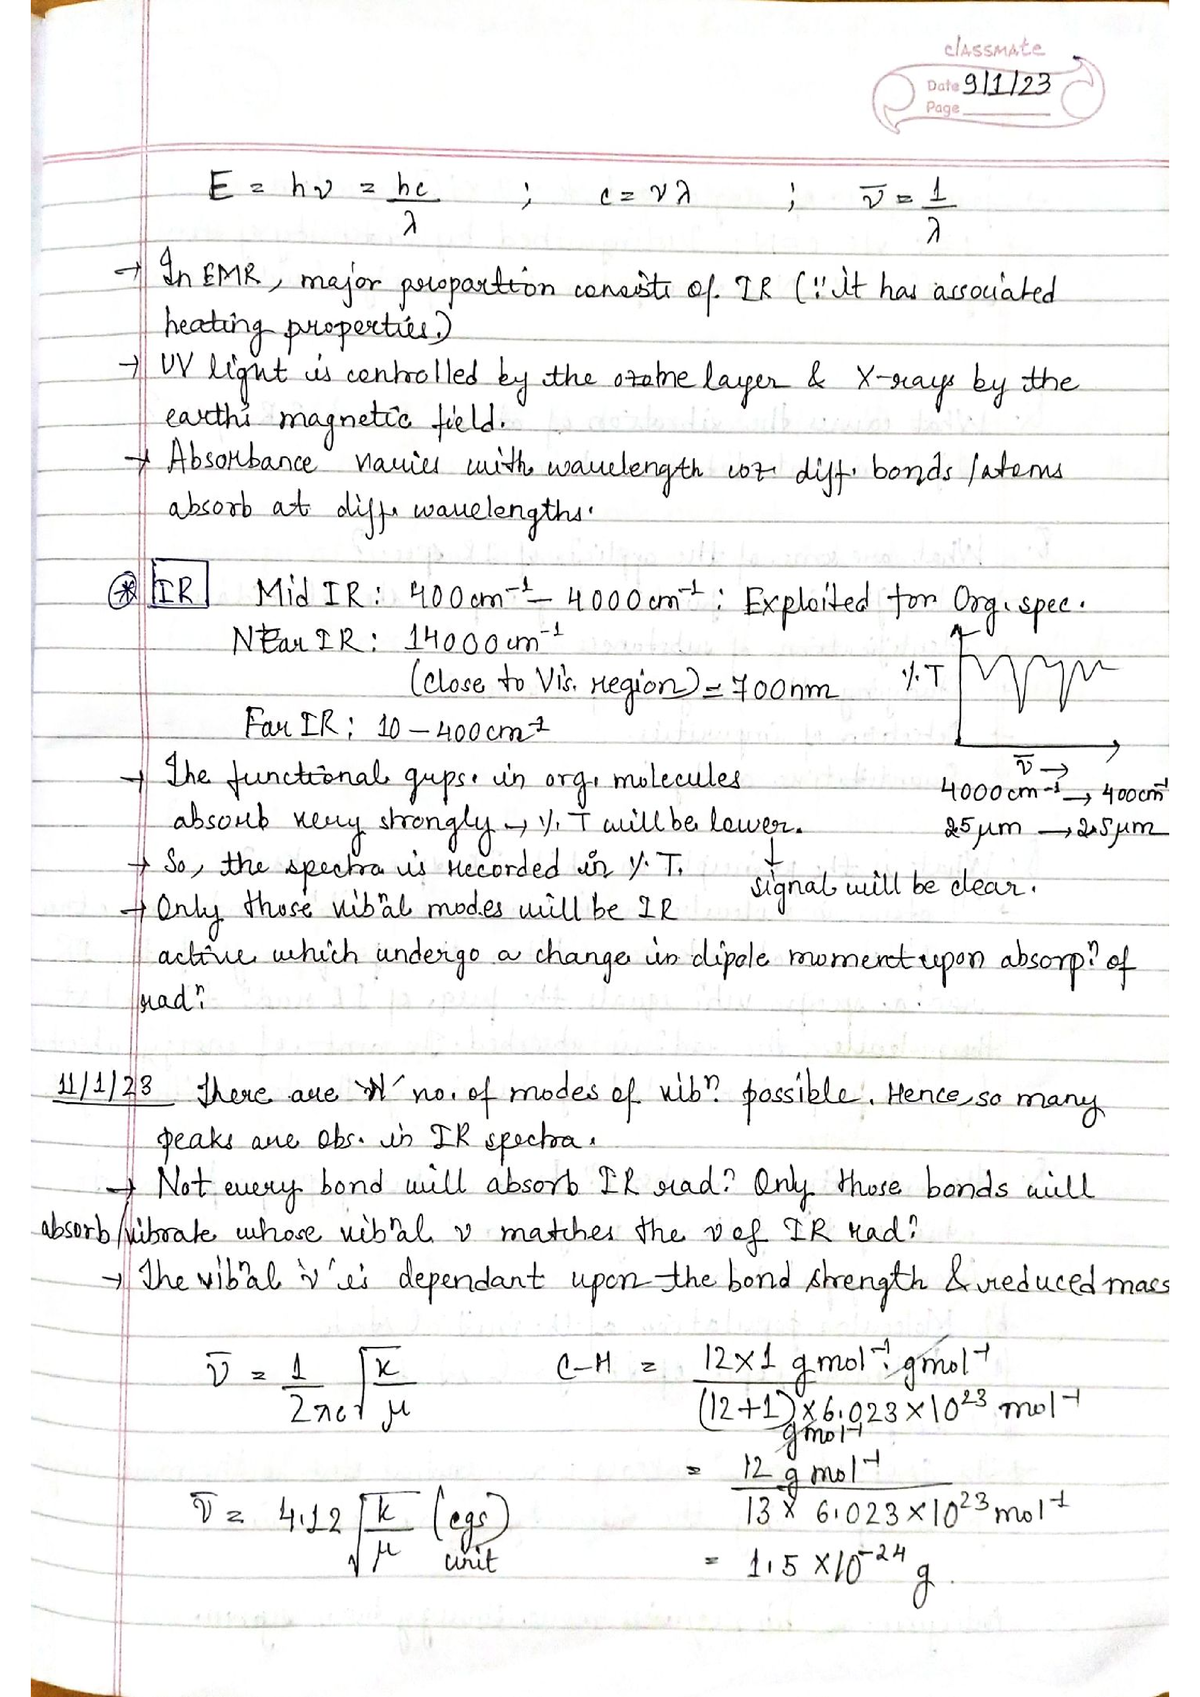 classmate
Date 9/1/23
Page
E = hν = hc/λ ; c = νλ ; ν̅ = 1/λ
→ In EMR, major proportion consists of IR (∵ it has associated
heating properties.)
→ UV light is controlled by the ozone layer & X-rays by the
earth's magnetic field.
→ Absorbance varies with wavelength coz diff. bonds/atoms
absorb at diff. wavelengths.
⊛ IR Mid IR: 400 cm⁻¹ – 4000 cm⁻¹: Exploited for Org. spec.
Near IR: 14000 cm⁻¹
(close to Vis. region) = 700nm
%T
Far IR: 10 – 400 cm⁻¹
ν̅ →
4000 cm⁻¹ → 400 cm⁻¹
25 μm → 2.5 μm
→ The functional grps. in org. molecules
absorb very strongly → %T will be lower.
↓
signal will be clear.
→ So, the spectra is recorded in %T.
→ Only those vibⁿal modes will be IR
active which undergo a change in dipole moment upon absorpⁿ of
radⁿ
11/1/23 There are 'N' no. of modes of vibⁿ possible. Hence, so many
peaks are obs. in IR spectra.
→ Not every bond will absorb IR radⁿ. Only those bonds will
absorb/vibrate whose vibⁿal ν matches the ν of IR radⁿ.
→ The vibⁿal 'ν' is dependant upon the bond strength & reduced mass
ν̅ = 1/2πc √(k/μ)
C–H = 12×1 g mol⁻¹ . g mol⁻¹ / (12+1) g mol⁻¹ × 6.023×10²³ mol⁻¹
= 12 g mol⁻¹ / 13 × 6.023×10²³ mol⁻¹
ν̅ = 4.12 √(k/μ) (cgs unit)
= 1.5 ×10⁻²⁴ g.